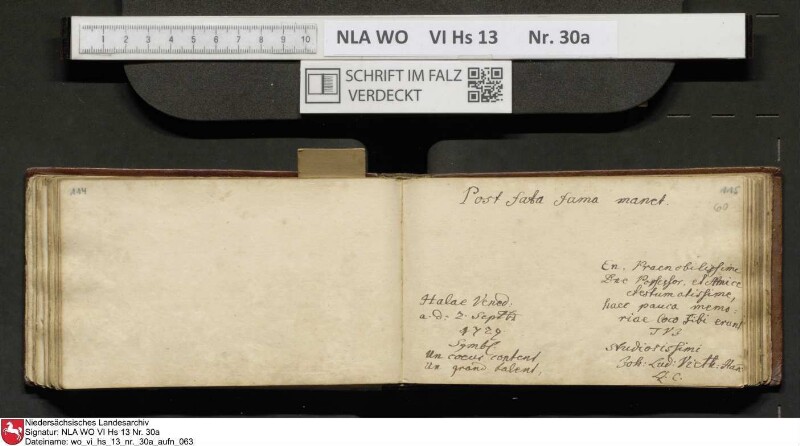 NLA WO VI Hs 13 Nr. 30a
SCHRIFT IM FALZ
VERDECKT
0 1 2 3 4 5 6 7 8 9 10
Post fata fama manet.
Halae Vened.
a. d. 2. Septbr
1729
Symb.
Un coeur content
Un grand talent.
En. Praenobilissime
Dne Possessor. et Amice
haec pauca memo-
riae loco Tibi erant
studiosissimi
Joh: Lud: Vieth:
Niedersächsisches Landesarchiv
Signatur: NLA WO VI Hs 13 Nr. 30a
Dateiname: wo_vi_hs_13_nr._30a_aufn_063